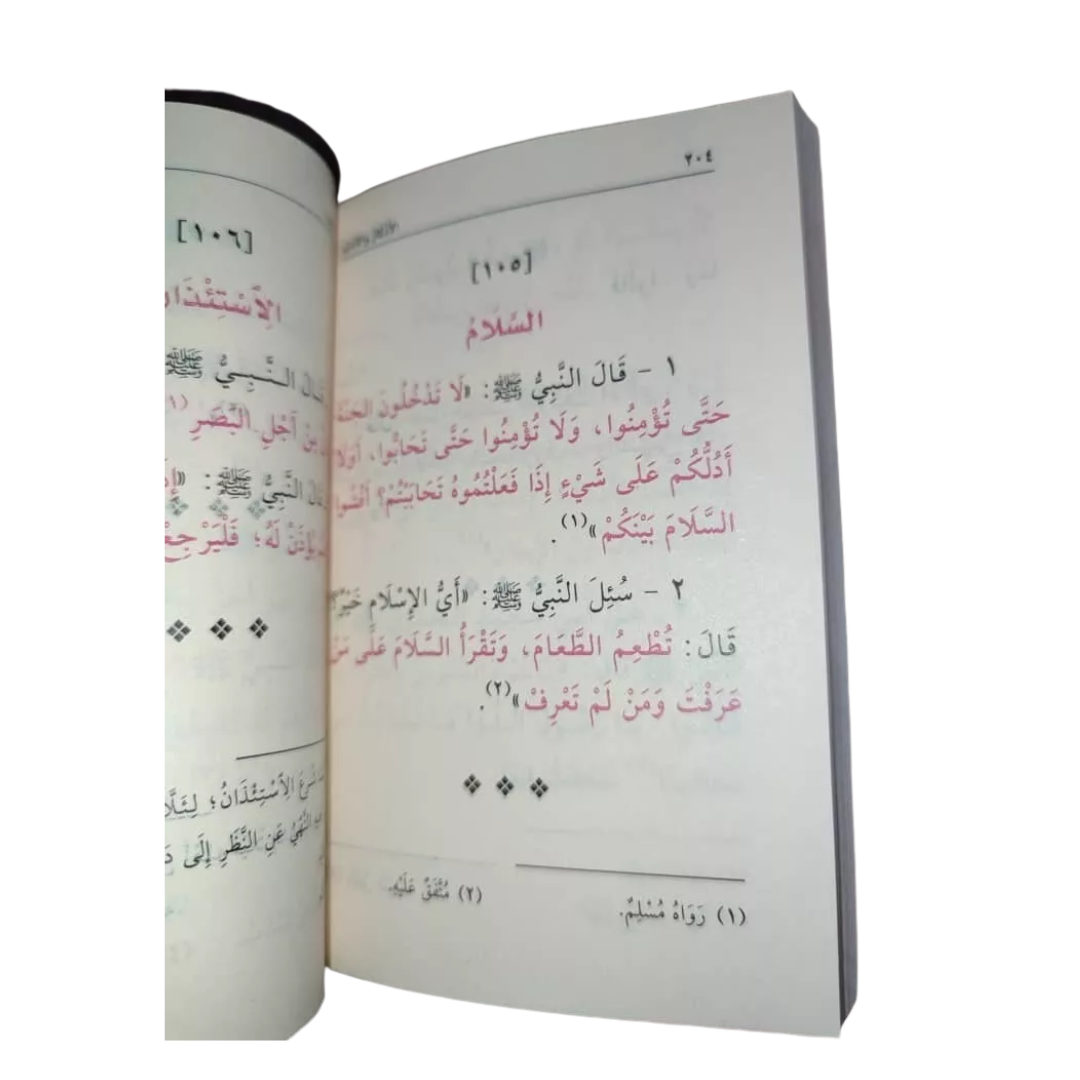 ٢٠٤
[١٠٥]
السَّلَامُ
١ - قَالَ النَّبِيُّ ﷺ: «لَا تَدْخُلُونَ الجَنَّةَ
حَتَّى تُؤْمِنُوا، وَلَا تُؤْمِنُوا حَتَّى تَحَابُّوا، أَوَلَا
أَدُلُّكُمْ عَلَى شَيْءٍ إِذَا فَعَلْتُمُوهُ تَحَابَبْتُمْ؟ أَفْشُوا
السَّلَامَ بَيْنَكُمْ»(١).
٢ - سُئِلَ النَّبِيُّ ﷺ: «أَيُّ الإِسْلَامِ خَيْرٌ؟
قَالَ: تُطْعِمُ الطَّعَامَ، وَتَقْرَأُ السَّلَامَ عَلَى مَنْ
عَرَفْتَ وَمَنْ لَمْ تَعْرِفْ»(٢).
(١) رَوَاهُ مُسْلِمٌ.
(٢) مُتَّفَقٌ عَلَيْهِ.
[١٠٦]
الِاسْتِئْذَان
النَّبِيُّ ﷺ
مِنْ أَجْلِ البَصَرِ (١)
النَّبِيُّ ﷺ:
يُؤْذَنْ لَهُ؛ فَلْيَرْجِعْ
شُرِعَ الِاسْتِئْذَانُ؛ لِئَلَّا
النَّهْيُ عَنِ النَّظَرِ إِلَى